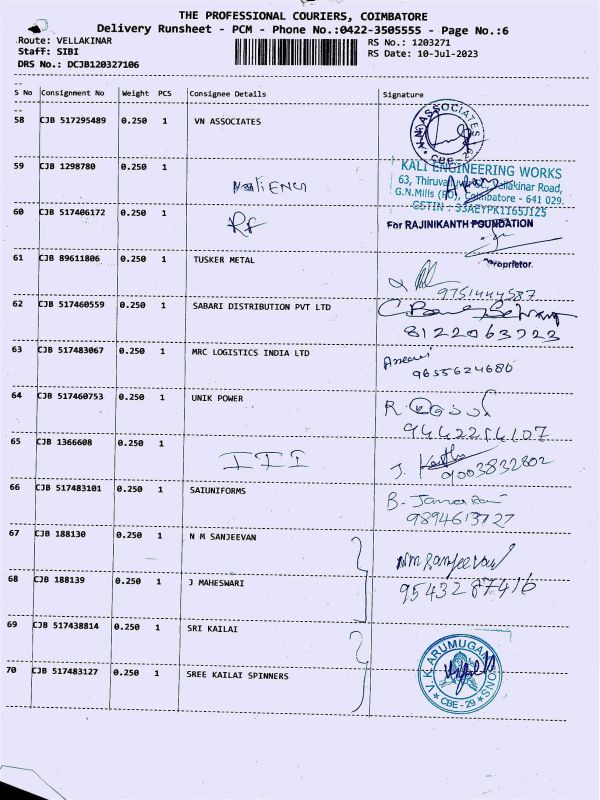 THE PROFESSIONAL COURIERS, COIMBATORE
Delivery Runsheet - PCM - Phone No.:0422-3505555 - Page No.:6
Route: VELLAKINAR
RS No.: 1203271
Staff: SIBI
RS Date: 10-Jul-2023
DRS No.: DCJB120327106
S No Consignment No Weight PCS Consignee Details Signature
58 CJB 517295489 0.250 1 VN ASSOCIATES
V.N. ASSOCIATES
CBE
59 CJB 1298780 0.250 1 Kali ENGG
KALI ENGINEERING WORKS
63, Thiruvalluvar Vellakinar Road,
G.N.Mills (PO), Coimbatore - 641 029.
GSTIN : 33AEYPK1165J1Z5
60 CJB 517406172 0.250 1 RF
For RAJINIKANTH FOUNDATION
Proprietor
61 CJB 89611806 0.250 1 TUSKER METAL
9751444587
62 CJB 517460559 0.250 1 SABARI DISTRIBUTION PVT LTD
8122063723
63 CJB 517483067 0.250 1 MRC LOGISTICS INDIA LTD
9655624686
64 CJB 517460753 0.250 1 UNIK POWER
R
65 CJB 1366608 0.250 1 III
J. 9003832802
66 CJB 517483101 0.250 1 SAIUNIFORMS
B.
67 CJB 188130 0.250 1 N M SANJEEVAN
NM Sanjeevan
68 CJB 188139 0.250 1 J MAHESWARI
9543287416
69 CJB 517438814 0.250 1 SRI KAILAI
70 CJB 517483127 0.250 1 SREE KAILAI SPINNERS
V.K. ARUMUGAM SONS
CBE-29